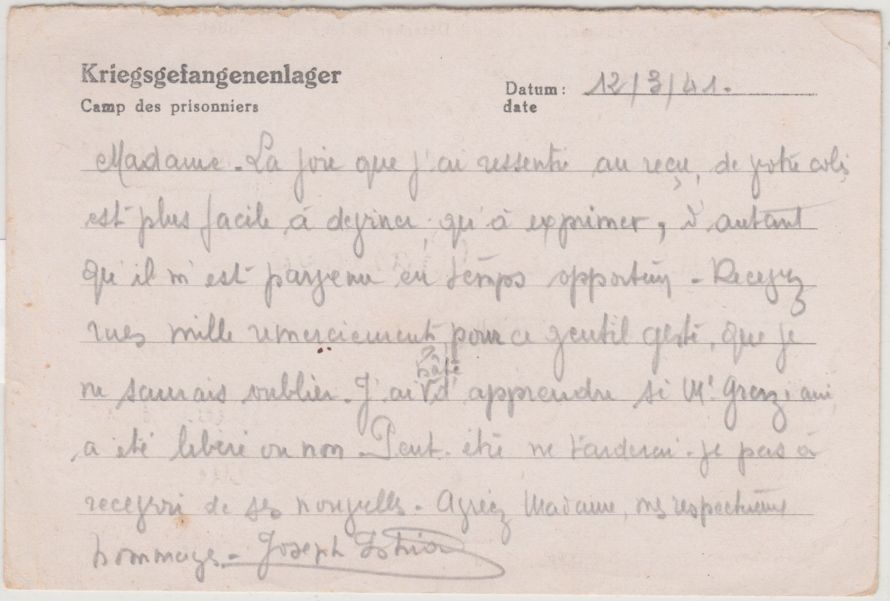 Kriegsgefangenenlager
Camp des prisonniers
Datum: 12/3/41.
date
Madame - La joie que j'ai ressentie au reçu, de votre colis
est plus facile à deviner, qu'à exprimer, d'autant
qu'il m'est parvenu en temps opportun - Recevez
mes mille remerciements pour ce gentil geste, que je
ne saurais oublier. J'ai hâte d'apprendre si Mr
a été libéré ou non - Peut-être ne tarderai-je pas à
recevoir de ses nouvelles - Agréez Madame, mes respectueux
hommages - Joseph